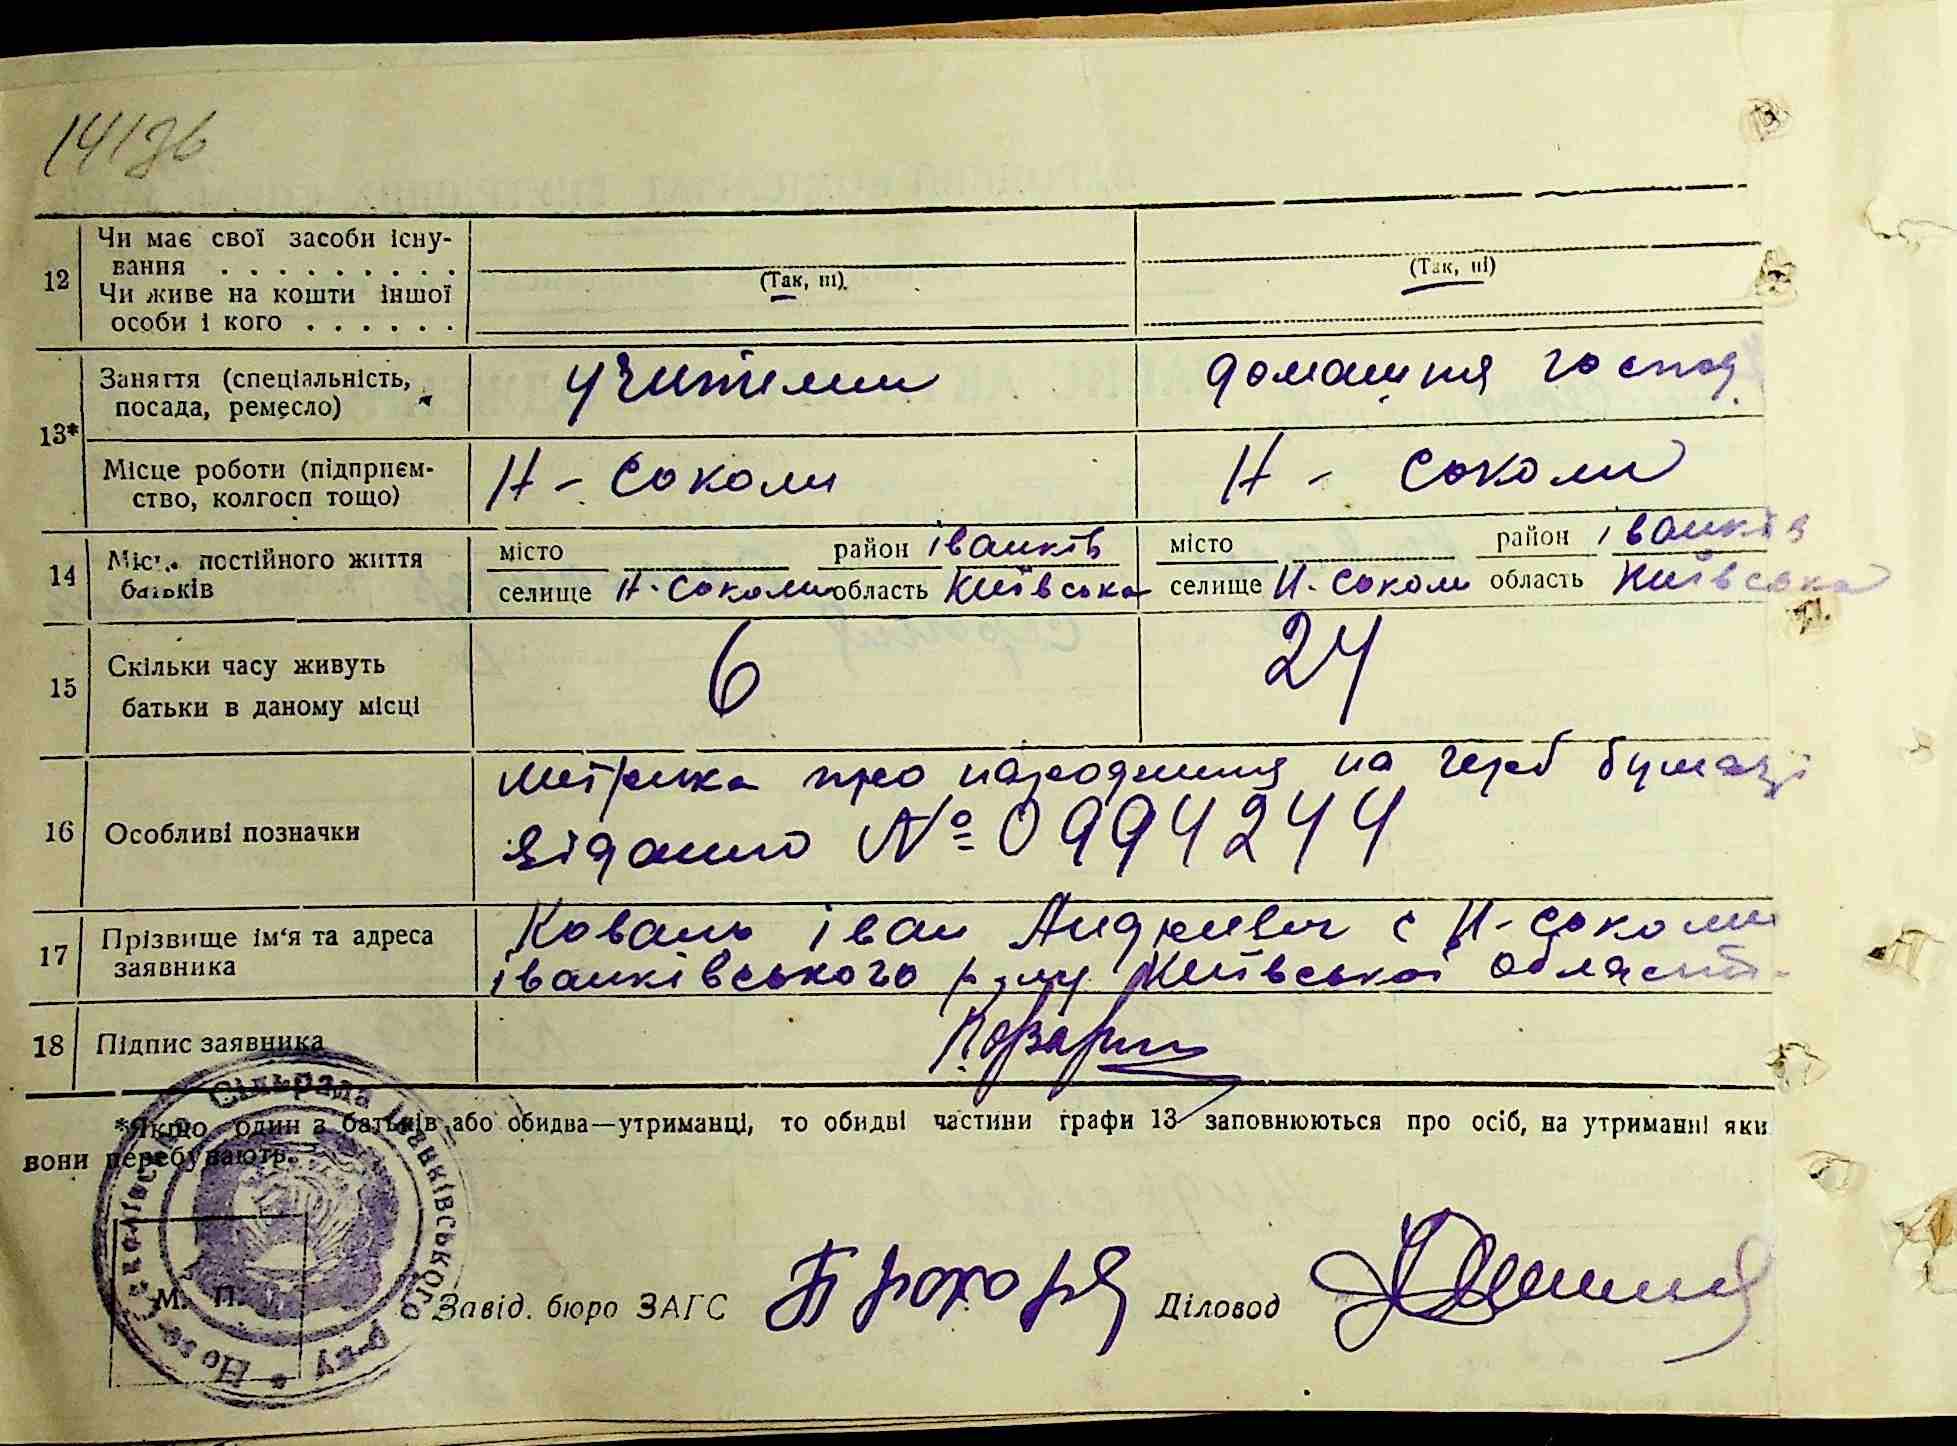 141зв
12 Чи має свої засоби існу-
вання . . . . . . . . .
(Так, ні). (Так, ні)
Чи живе на кошти іншої
особи і кого . . . . . .
13* Заняття (спеціальність, посада, ремесло) учитель домашня господ.
Місце роботи (підприєм-
ство, колгосп тощо) Н - Соколи Н - Соколи
14 Місце постійного життя місто район Іванків місто район Іванків
батьків селище Н-Соколи область Київська селище Н-Соколи область Київська
15 Скільки часу живуть
батьки в даному місці 6 24
16 Особливі позначки метрика про народження на герб бумазі
відано № 0994244
17 Прізвище ім'я та адреса
заявника Коваль Іван Андрієвич с Н-Соколи
Іванківського р-ну Київської області
18 Підпис заявника
*Якщо один з батьків або обидва—утриманці, то обидві частини графи 13 заповнюються про осіб, на утриманні яких
вони перебувають.
Ново-Соколівська Сільрада Іванківського р-ну
М. П.
Завід. бюро ЗАГС Діловод